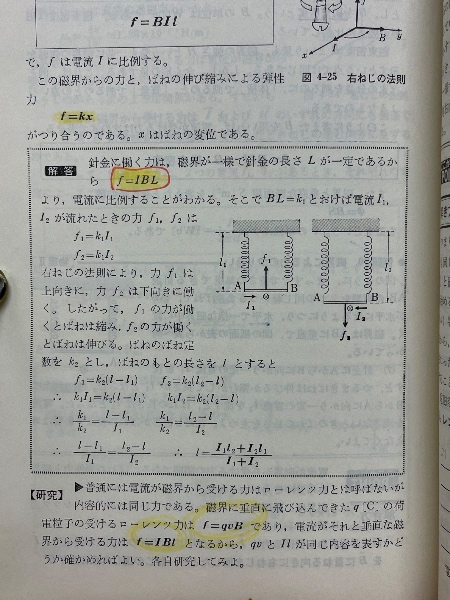 f=BIl
で，f は電流 I に比例する。
図 4-25 右ねじの法則
x
I
B
y
この磁界からの力と，ばねの伸び縮みによる弾性
力
f=kx
がつり合うのである。x はばねの変位である。
解答 針金に働く力は，磁界が一様で針金の長さ L が一定であるか
ら f=IBL
より，電流に比例することがわかる。そこで BL=k₁ とおけば電流 I₁,
I₂ が流れたときの力 f₁, f₂ は
f₁=k₁I₁
f₂=k₁I₂
右ねじの法則により，力 f₁ は
上向きに，力 f₂ は下向きに働
く。したがって，f₁ の力が働
くとばねは縮み，f₂ の力が働く
とばねは伸びる。ばねのばね定
数を k₂ とし，ばねのもとの長さを l とすると
l₁
f₁
A
B
I₁
l₂
A
B
I₂
f₂
f₁=k₂(l−l₁) f₂=k₂(l₂−l)
∴ k₁I₁=k₂(l−l₁) k₁I₂=k₂(l₂−l)
∴ k₁/k₂=(l−l₁)/I₁ k₁/k₂=(l₂−l)/I₂
∴ (l−l₁)/I₁=(l₂−l)/I₂ ∴ l=(I₁l₂+I₂l₁)/(I₁+I₂)
【研究】 ▶普通には電流が磁界から受ける力はローレンツ力とは呼ばないが
内容的には同じ力である。磁界に垂直に飛び込んできた q [C] の荷
電粒子の受けるローレンツ力は f=qvB であり，電流がそれと垂直な磁
界から受ける力は f=IBl となるから，qv と Il が同じ内容を表すかど
うか確かめればよい。各自研究してみよ。